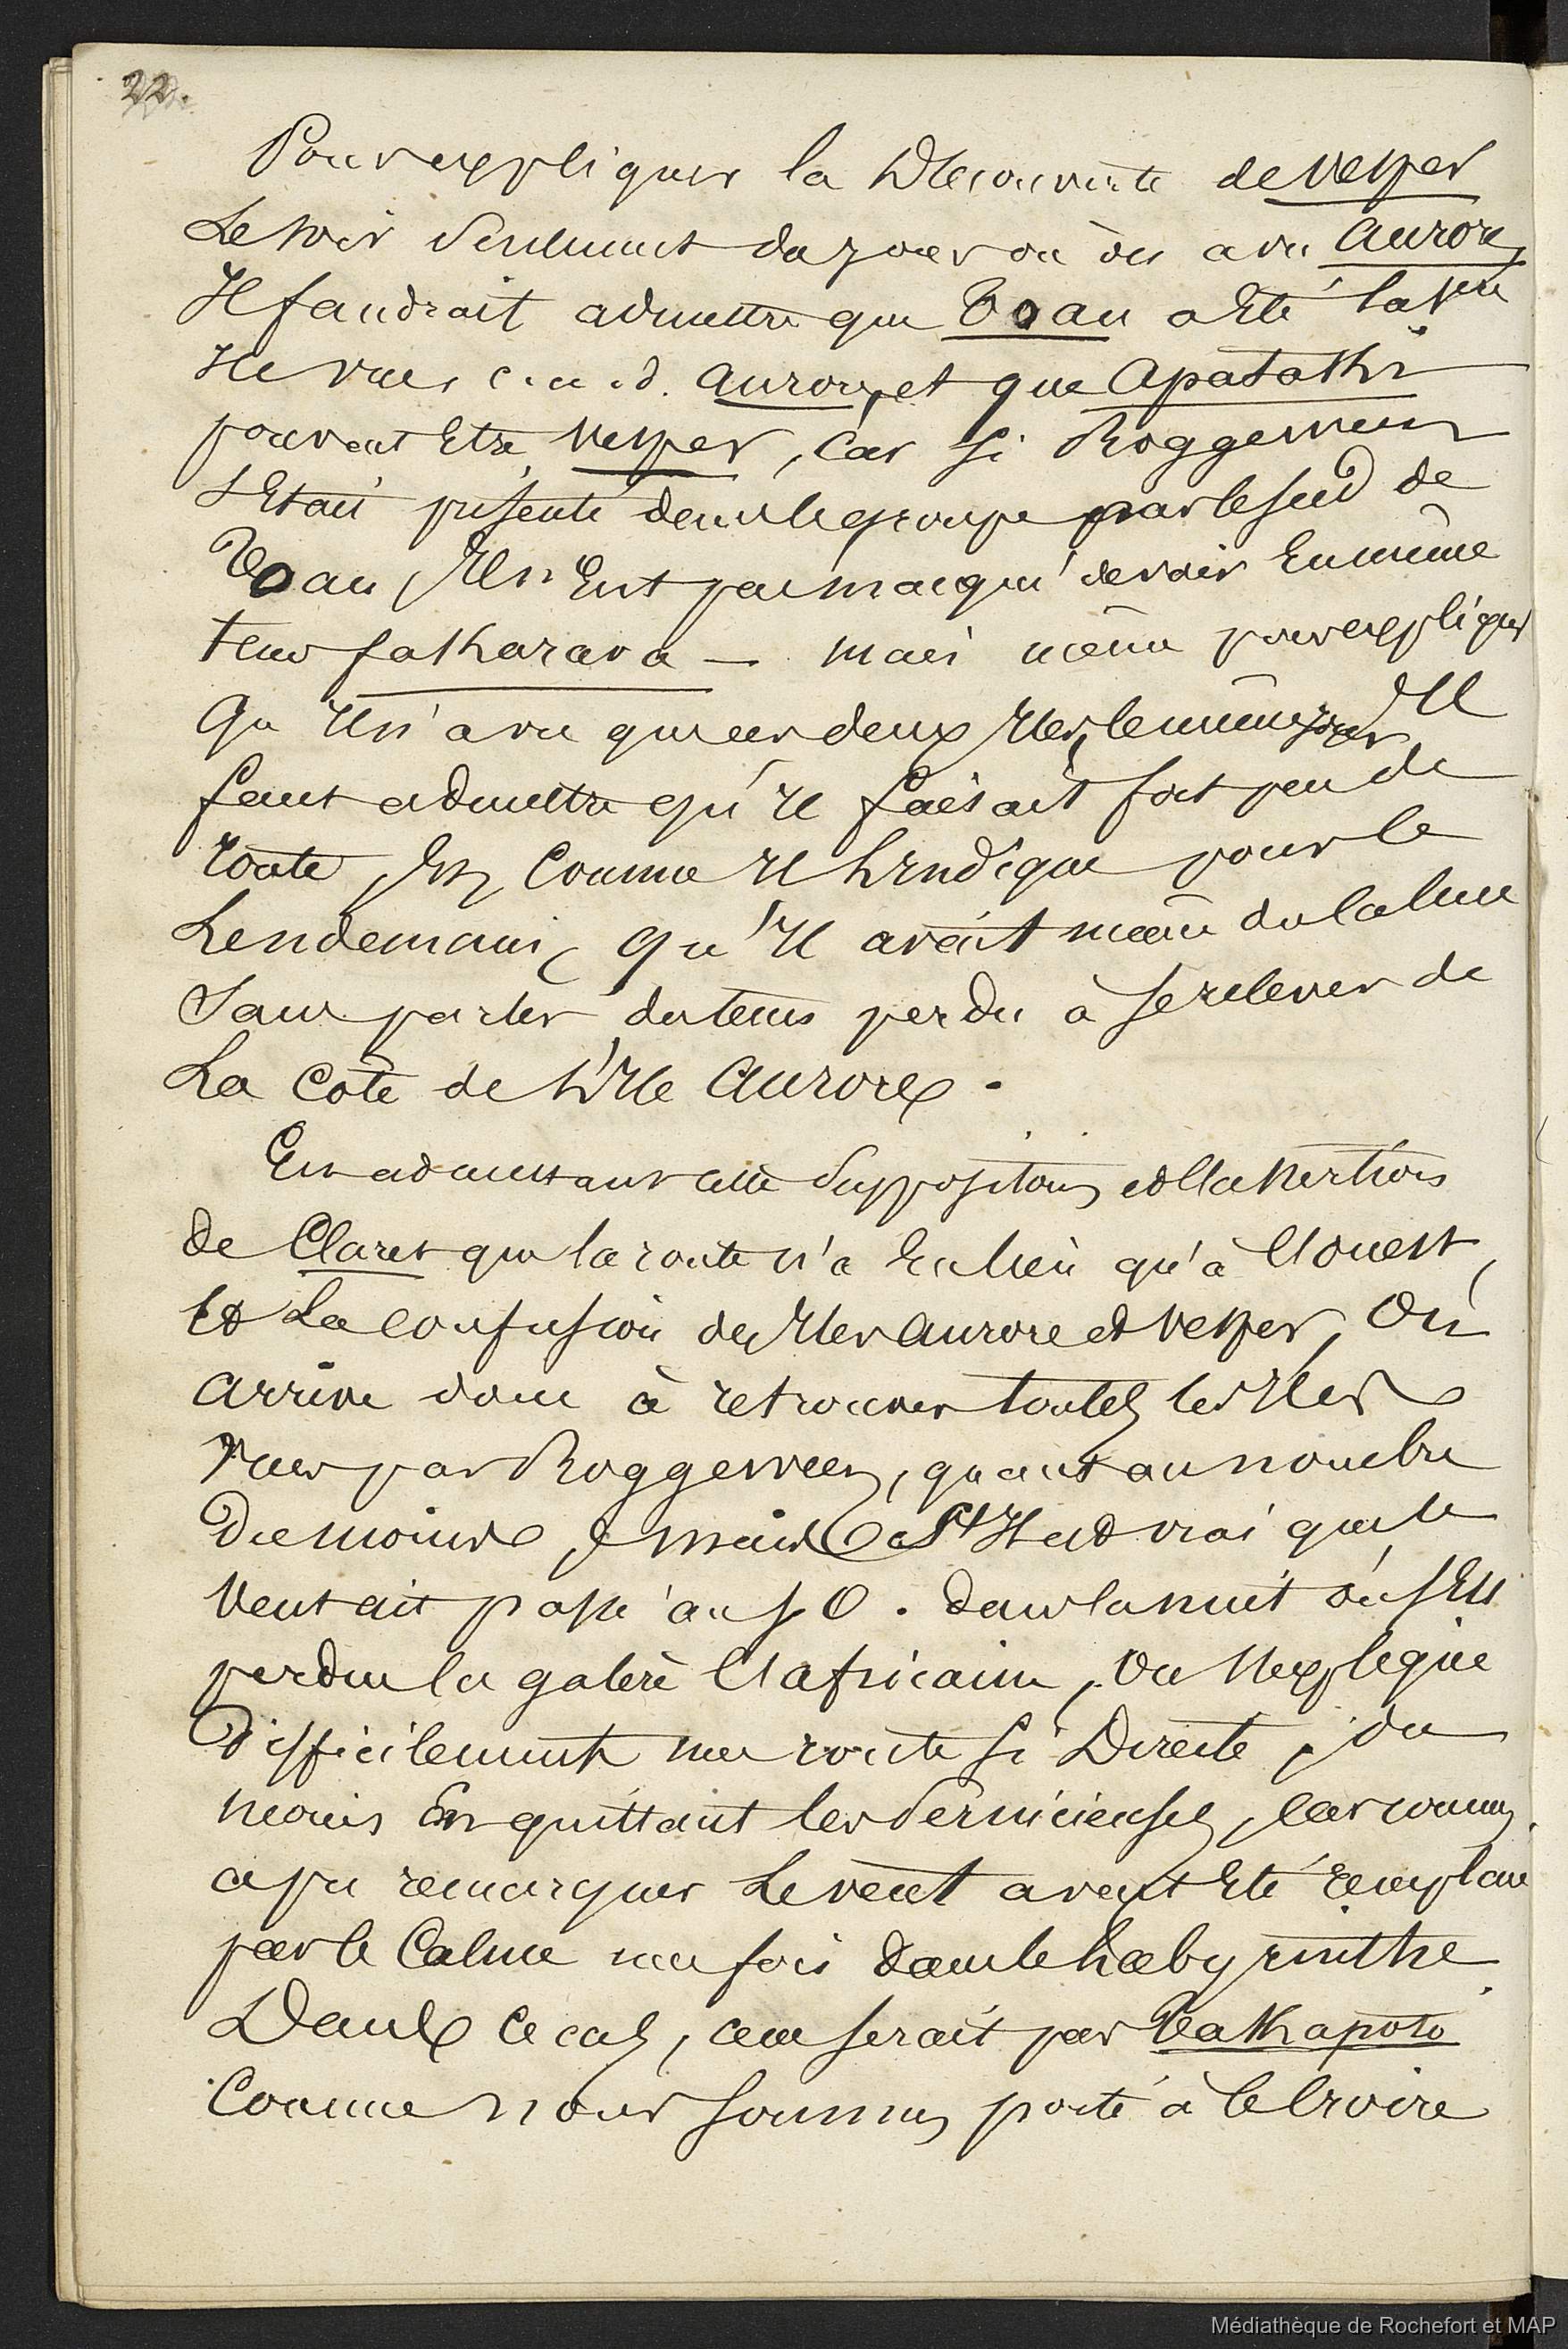 22.
Pour expliquer la Découverte de Vesper
Le soir seulement du jour où on a vu Aurore
Il faudrait admettre que Toau a été la 1ere
Ile vue, c. a. d. Aurore, et que Apatathi
pouvait être Vesper, car si Roggeween
s'était présenté dans le groupe par le sud de
Toau, Il n'eut pas manqué de voir En même
tems fakharava — mais même pour expliquer
Qu'Il n'a vu que ces deux Iles, le même jour, Il
faut admettre qu'Il faisait fort peu de
route, Comme Il L'Indique pour le
Lendemain, qu'Il avait même du Calme
Sans parler du tems perdu à se relever de
La Cote de L'Ile Aurore.
En admettant cette Supposition et l'assertion
de Claret que la route n'a Eu lieu qu'à l'ouest,
Et La confusion des Iles Aurore et Vesper, On
arrive donc à retrouver toutes les Iles
vues par Roggeween, quant au nombre
Du moins, mais S'Il est vrai que le
Vent ait passé au S O. dans la nuit où s'Est
perdue la galère l'africaine, On s'explique
Difficilement une route si Directe, du
moins En quittant les Pernicieuses, car comme
a pu remarquer Le vent avait été remplacé
par le Calme une fois dans le Labyrinthe
Dans Ce cas, ce serait par Takhapoto
Comme nous sommes porté à le Croire
Médiathèque de Rochefort et MAP